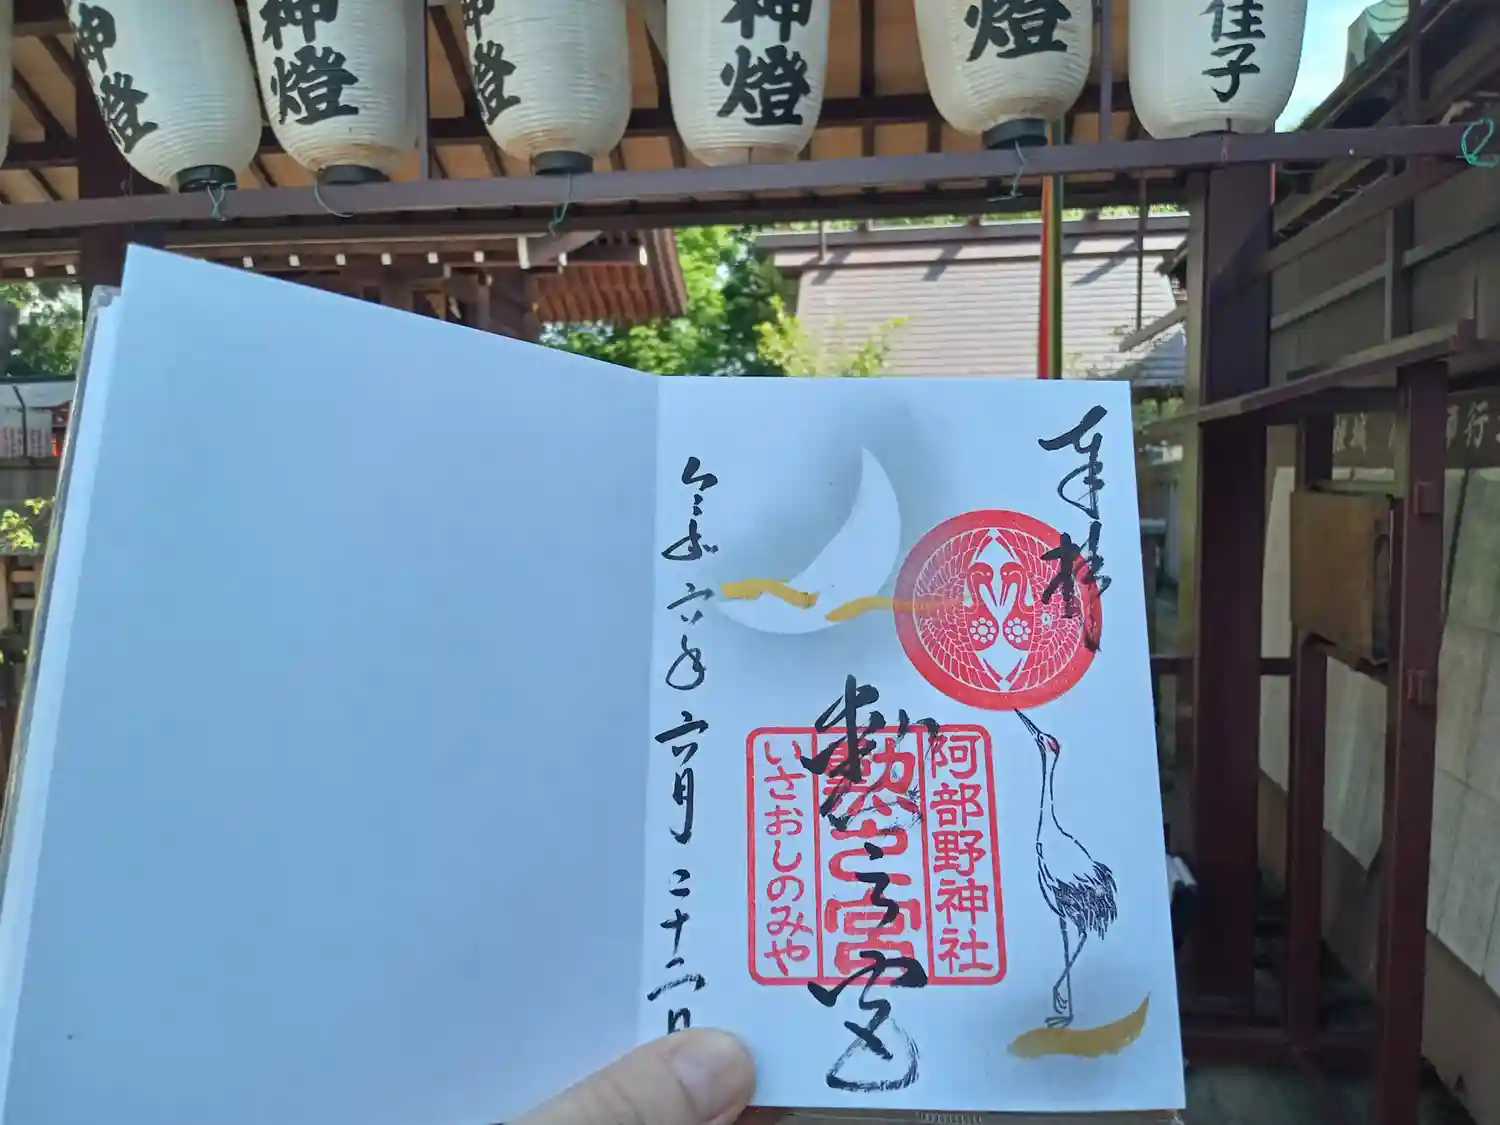 神燈
神燈
神燈
神燈
燈
佳子
奉拝
阿部野神社
勲之宮
いさおしのみや
勲之宮
令和六年六月二十二日